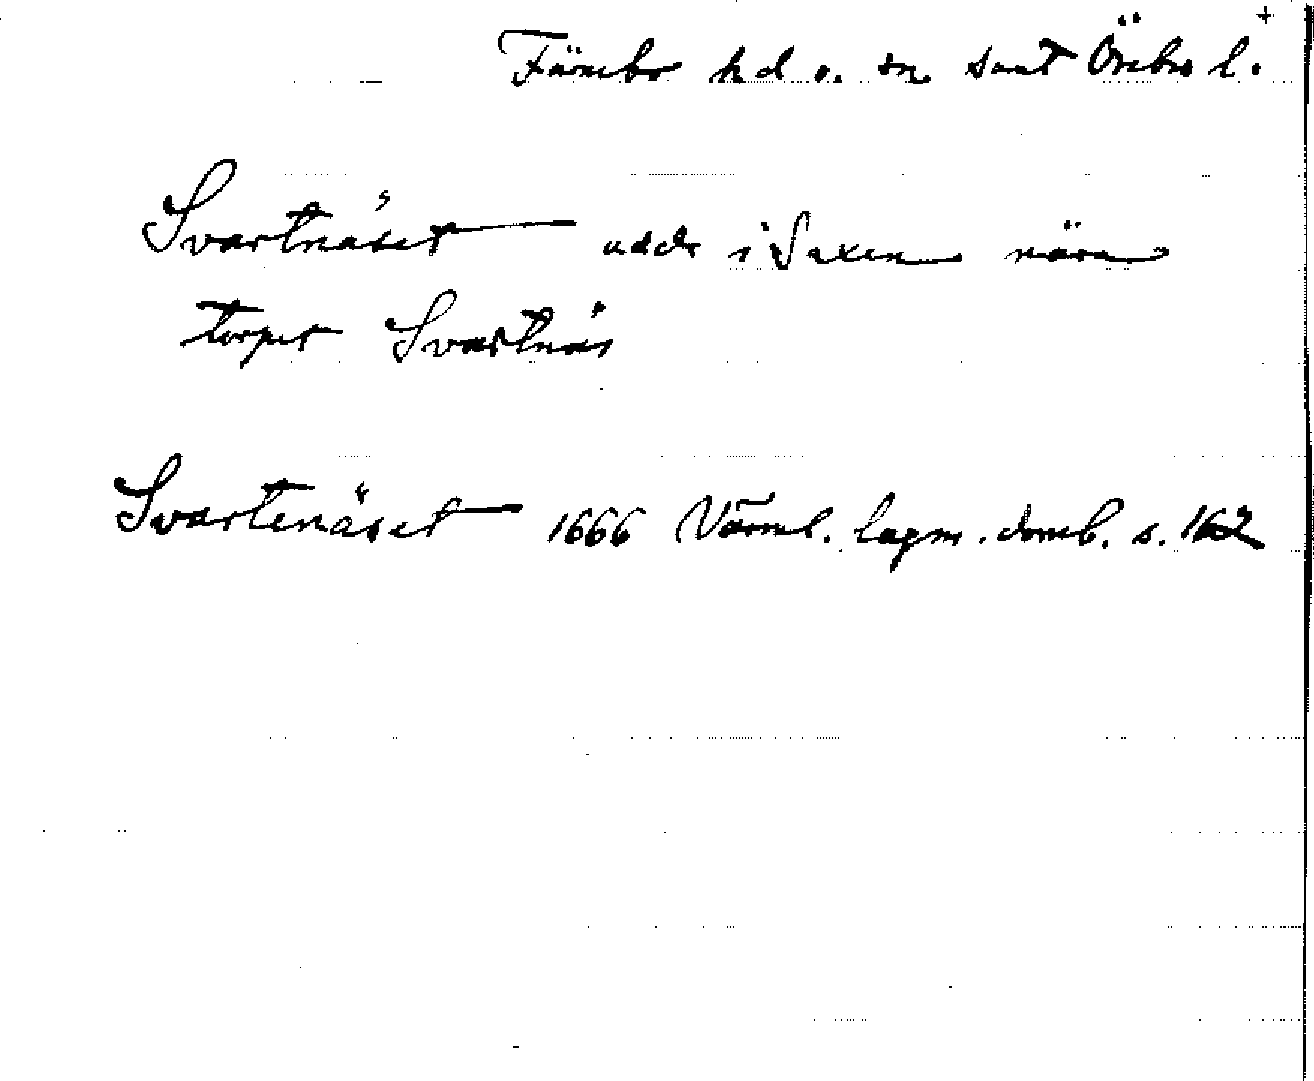 +
Färnebo hd o. sn samt Örebro l.
Svartnäset udde i Saxen nära
torpet Svartnäs
Svartenäset 1666 Värml. lagm. domb. s. 162